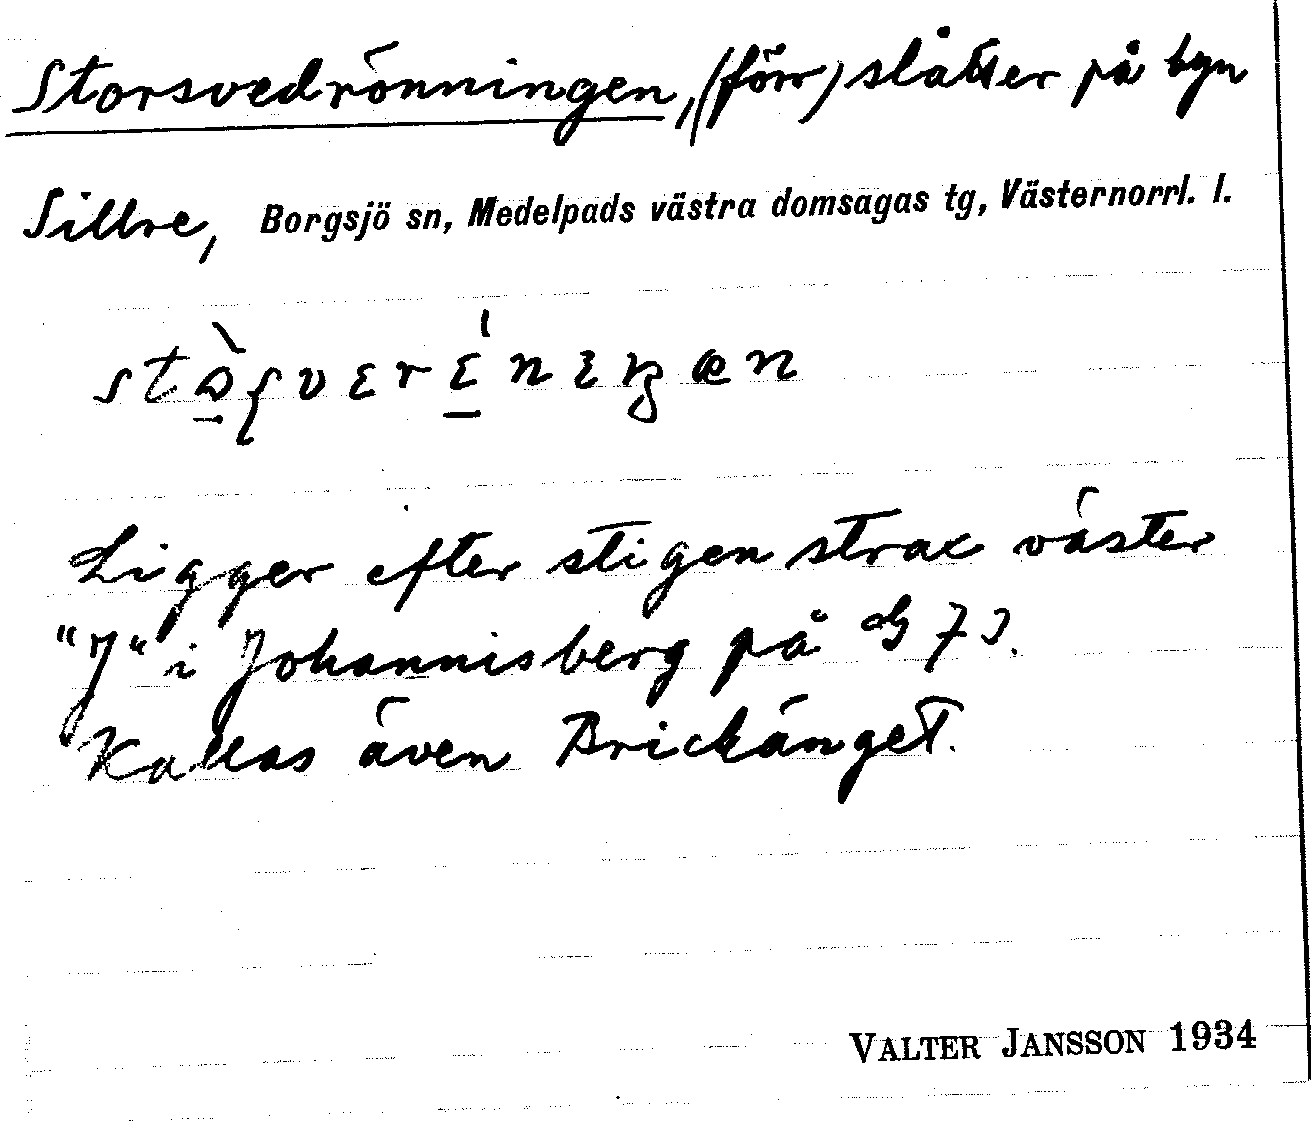 Storsvedrönningen, (förr) slåtter på byn
Sillre, Borgsjö sn, Medelpads västra domsagas tg, Västernorrl. l.
Ligger efter stigen strax väster
"J" i Johannisberg på G 73.
Kallas även Brickänget.
VALTER JANSSON 1934